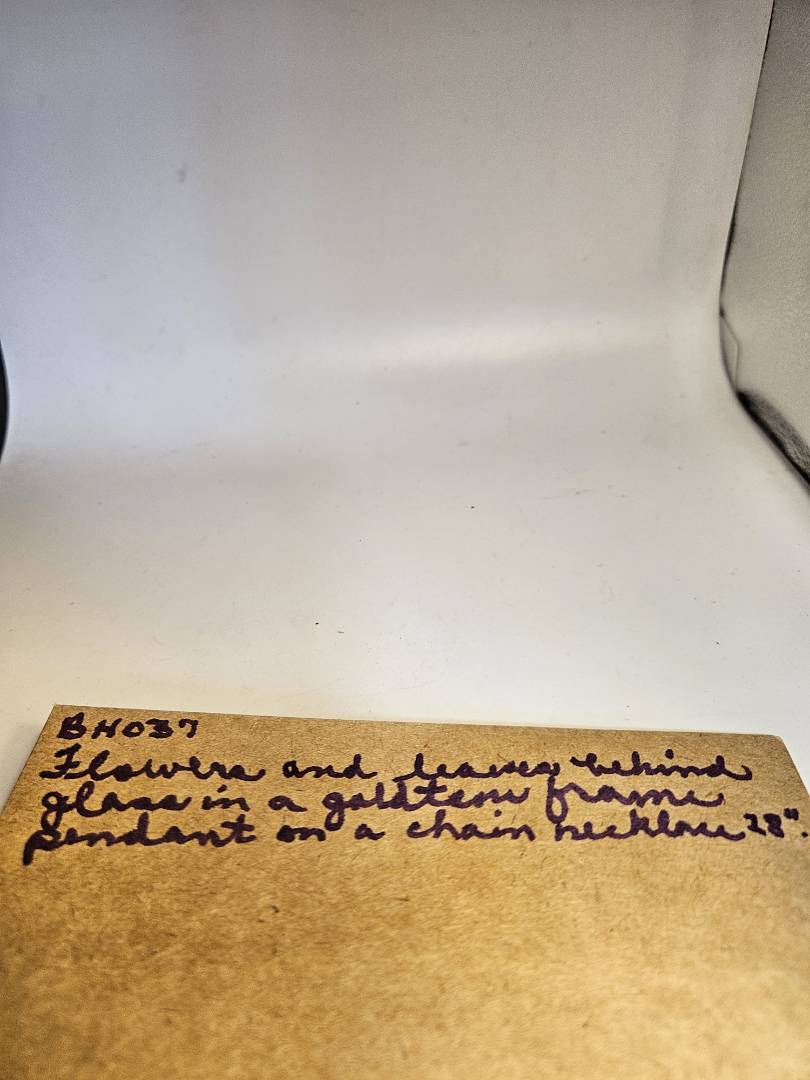 BH037
Flowers and leaves behind
glass in a goldtone frame
pendant on a chain necklace 28".